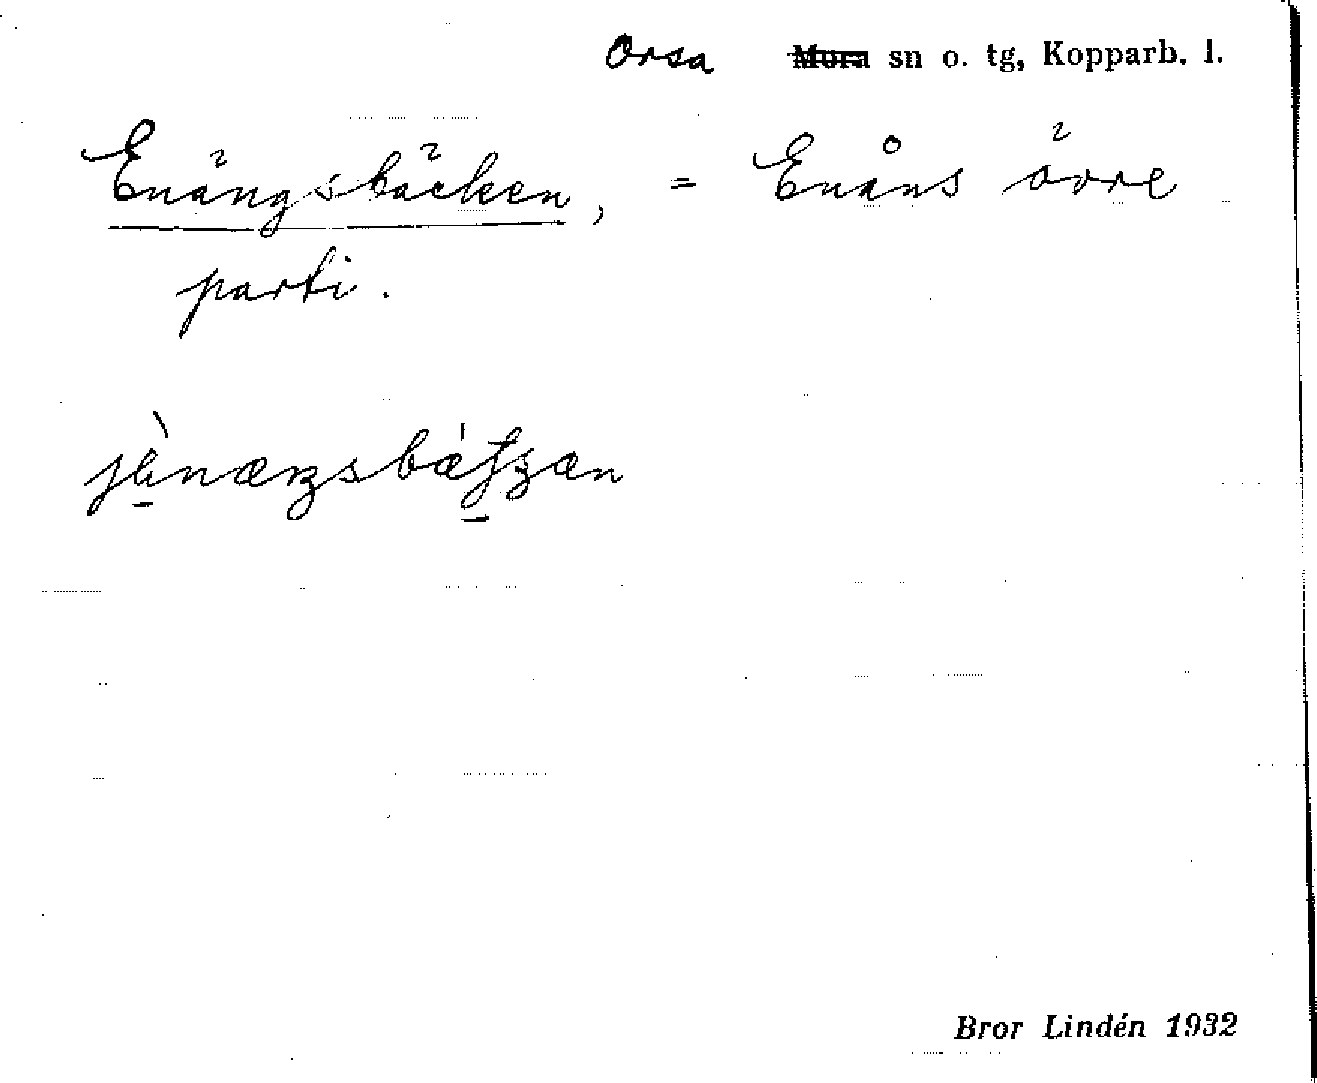 Orsa Mora sn o. tg, Kopparb. l.
Enängsbäcken, = Enåns övre
parti.
Bror Lindén 1932